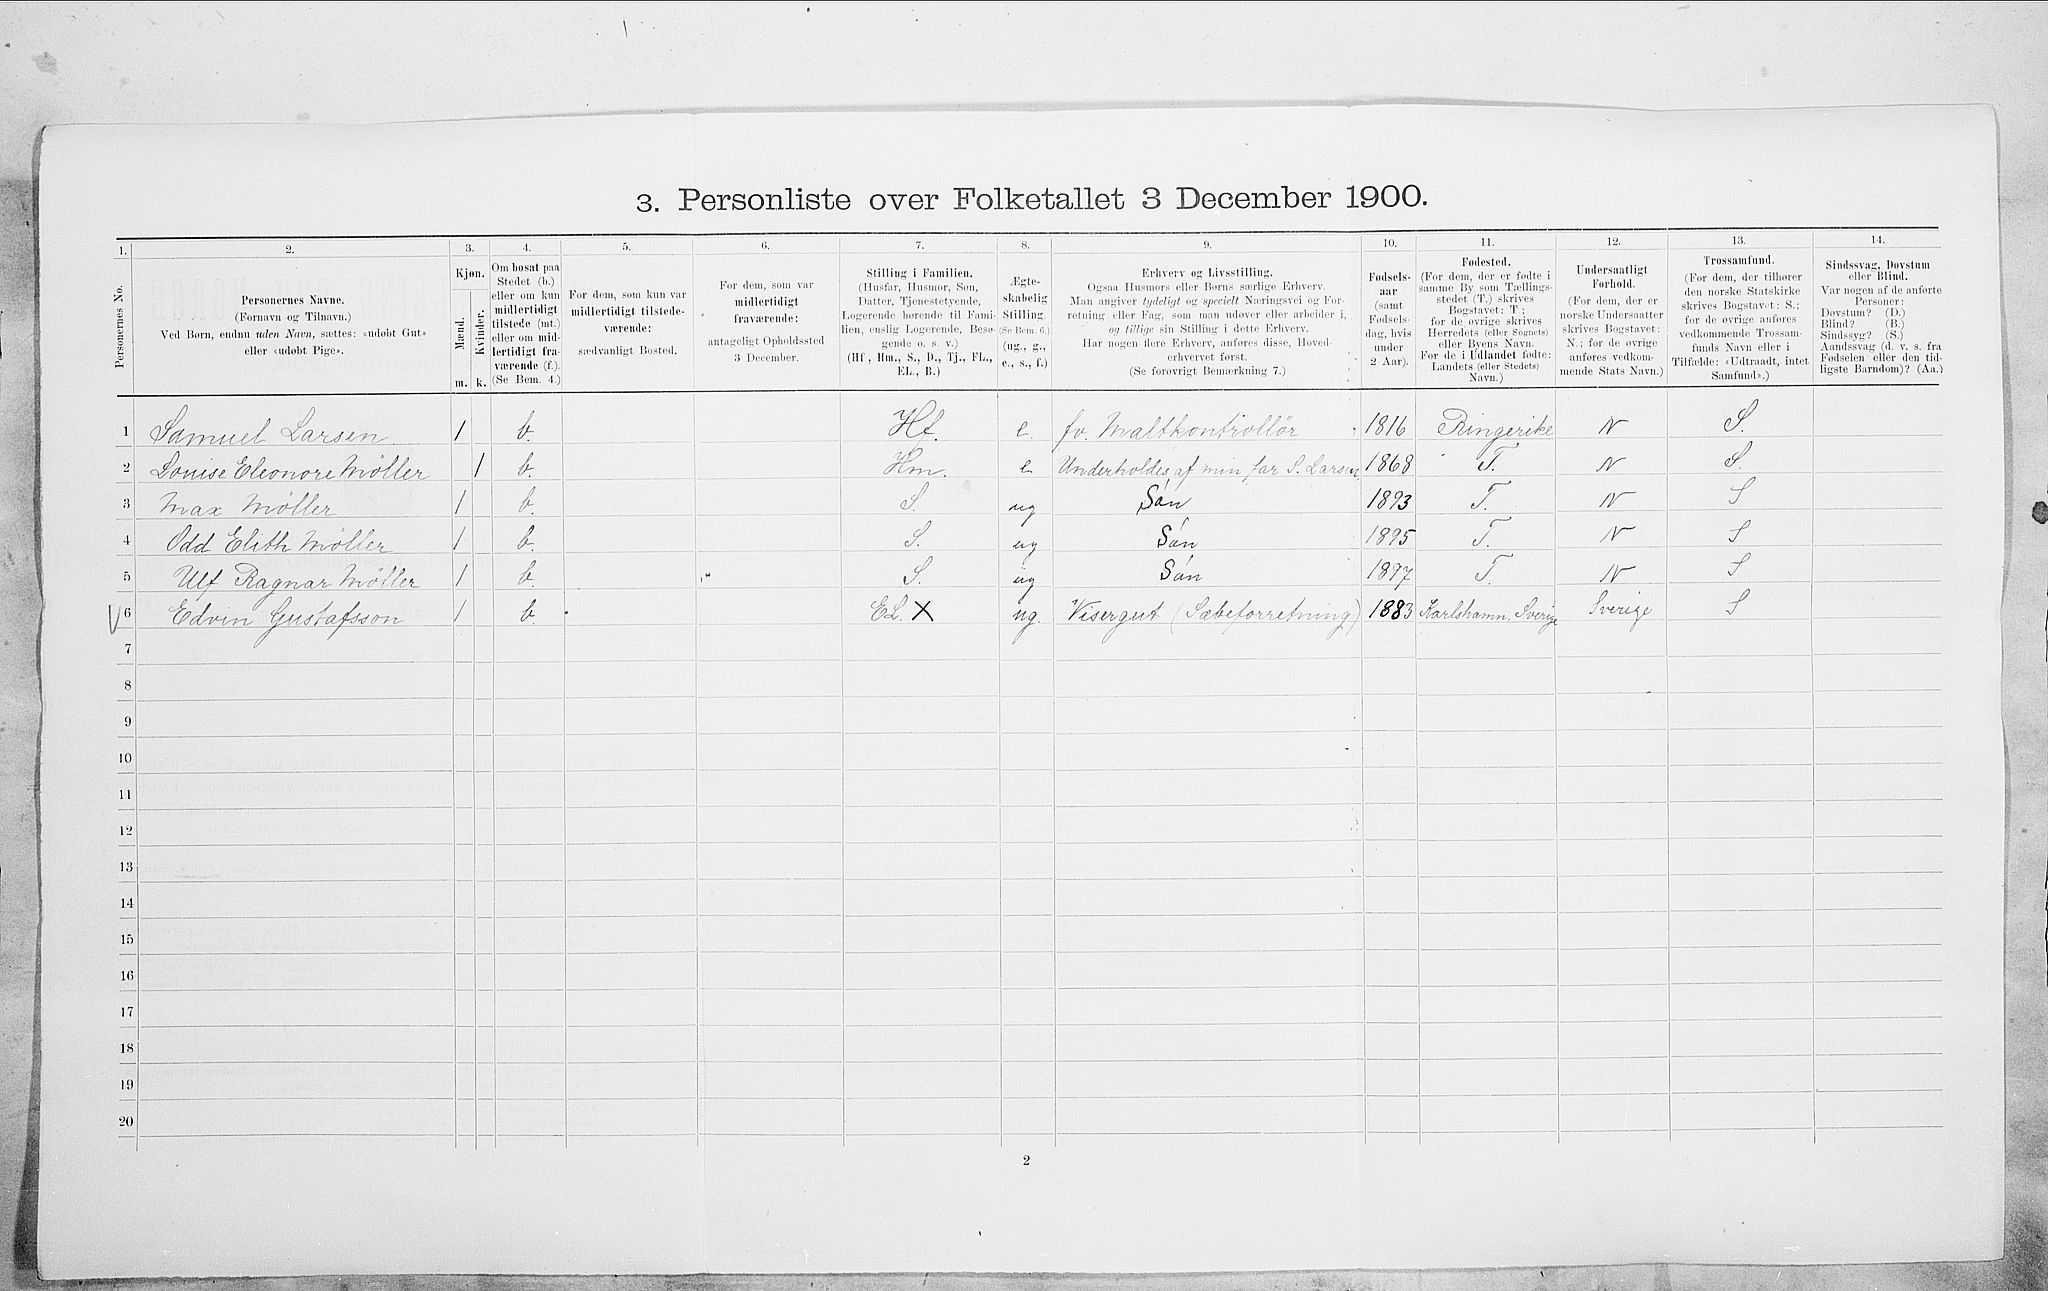 3. Personliste over Folketallet 3 December 1900.
1. 2. 3. 4. 5. 6. 7. 8. 9. 10. 11. 12. 13. 14.
Personernes No.
Personernes Navne.
(Fornavn og Tilnavn.)
Ved Børn, endnu uden Navn, sættes: «udøbt Gut»
eller «udøbt Pige».
Kjøn.
Mænd.
Kvinder.
m. k.
Om bosat paa
Stedet (b.)
eller om kun
midlertidigt
tilstede (mt.)
eller om mid-
lertidigt fra-
værende (f.)
(Se Bem. 4.)
For dem, som kun var
midlertidigt tilstede-
værende:
sædvanligt Bosted.
For dem, som var
midlertidigt
fraværende:
antageligt Opholdssted
3 December.
Stilling i Familien.
(Husfar, Husmor, Søn,
Datter, Tjenestetyende,
Logerende hørende til Fami-
lien, enslig Logerende, Besø-
gende o. s. v.)
(Hf, Hm., S., D., Tj., FL.,
EL., B.)
Ægte-
skabelig
Stilling.
(Se Bem. 6.)
(ug., g.,
e., s., f.)
Erhverv og Livsstilling.
Ogsaa Husmors eller Børns særlige Erhverv.
Man angiver tydeligt og specielt Næringsvei og For-
retning eller Fag, som man udøver eller arbeider i,
og tillige sin Stilling i dette Erhverv.
Har nogen flere Erhverv, anføres disse, Hoved-
erhvervet først.
(Se forøvrigt Bemærkning 7.)
Fødsels-
aar
(samt
Fødsels-
dag, hvis
under
2 Aar).
Fødested.
(For dem, der er fødte i
samme By som Tællings-
stedet (T.) skrives
Bogstavet: T.;
for de øvrige skrives
Herredets (eller Sognets)
eller Byens Navn.
For de i Udlandet fødte:
Landets (eller Stedets)
Navn.)
Undersaatligt
Forhold.
(For dem, der er
norske Undersaatter
skrives Bogstavet:
N.; for de øvrige
anføres vedkom-
mende Stats Navn.)
Trossamfund.
(For dem, der tilhører
den norske Statskirke
skrives Bogstavet: S.;
for de øvrige anføres
vedkommende Trossam-
funds Navn eller i
Tilfælde: «Udtraadt, intet
Samfund».)
Sindssvag, Døvstum
eller Blind.
Var nogen af de anførte
Personer:
Døvstum? (D.)
Blind? (B.)
Sindssyg? (S.)
Aandssvag (d. v. s. fra
Fødselen eller den tid-
ligste Barndom)? (Aa.)
1 Samuel Larsen 1 b. Hf. e. fv. Maltkontrollör 1816 Ringerike N S.
2 Louise Eleonore Møller 1 b. Hm. e Underholdes af min far S. Larsen 1868 T. N S.
3 Max Møller 1 b. S. ug Sön 1893 T. N S
4 Odd Elith Møller 1 b. S. ug Sön 1895 T. N S
5 Ulf Ragnar Møller 1 b. S. ug Sön 1897 T. N S
V 6 Edvin Gustafsson 1 b. EL. X ug. Visergut (Sæbeforretning) 1883 Karlshamn. Sverige Sverige S
7
8
9
10
11
12
13
14
15
16
17
18
19
20
2